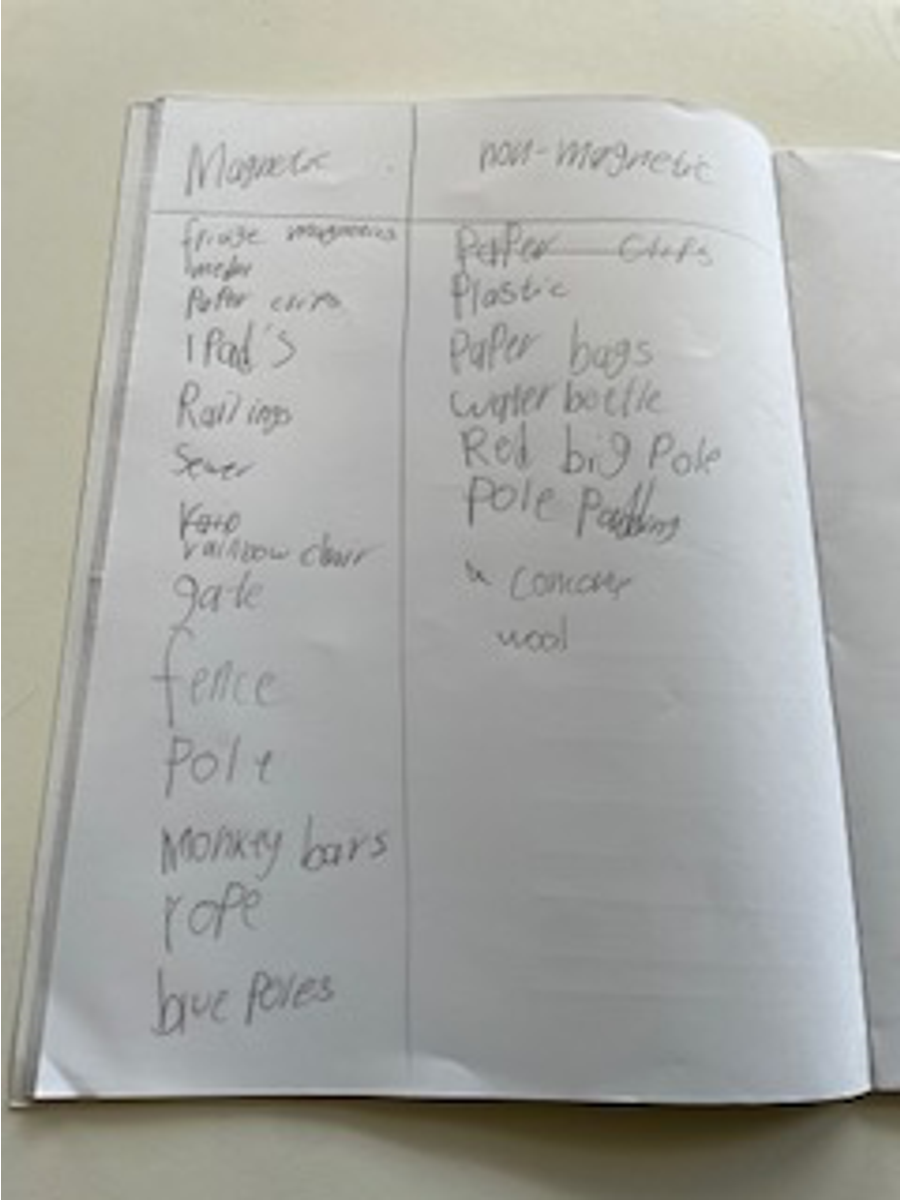 Magnetic
fridge magnetics
Paper clips
IPad's
Railings
Sewer
rainbow chair
gate
fence
Pole
Monkey bars
rope
blue Poles
non-magnetic
Paper Clips
Plastic
Paper bags
water bottle
Red big Pole
Pole Padding
wool